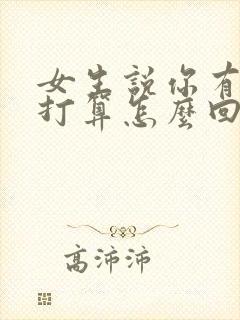 女生說你有
打算怎麼回
高沛沛